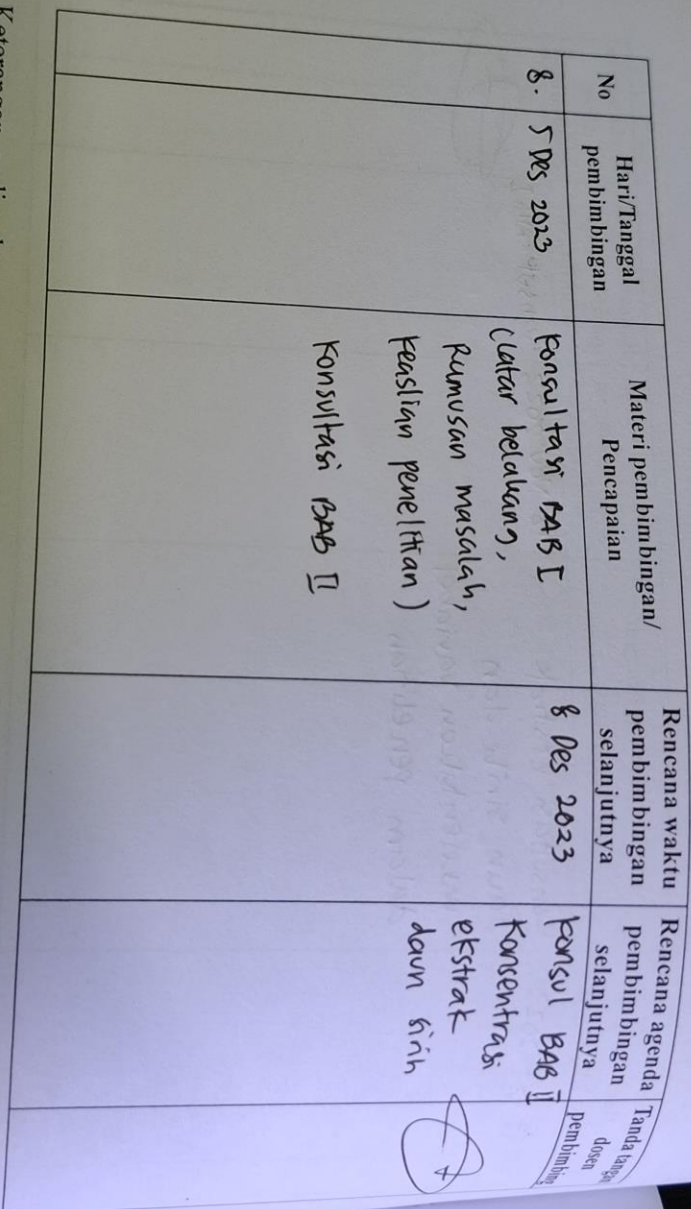 No
Hari/Tanggal
pembimbingan
Materi pembimbingan/
Pencapaian
Rencana waktu
pembimbingan
selanjutnya
Rencana agenda
pembimbingan
selanjutnya
Tanda tangan
dosen
pembimbing
8.
5 Des 2023
Konsultasi BAB I
(latar belakang,
Rumusan masalah,
keaslian penelitian)
Konsultasi BAB II
8 Des 2023
Konsul BAB II
Konsentrasi
ekstrak
daun sirih